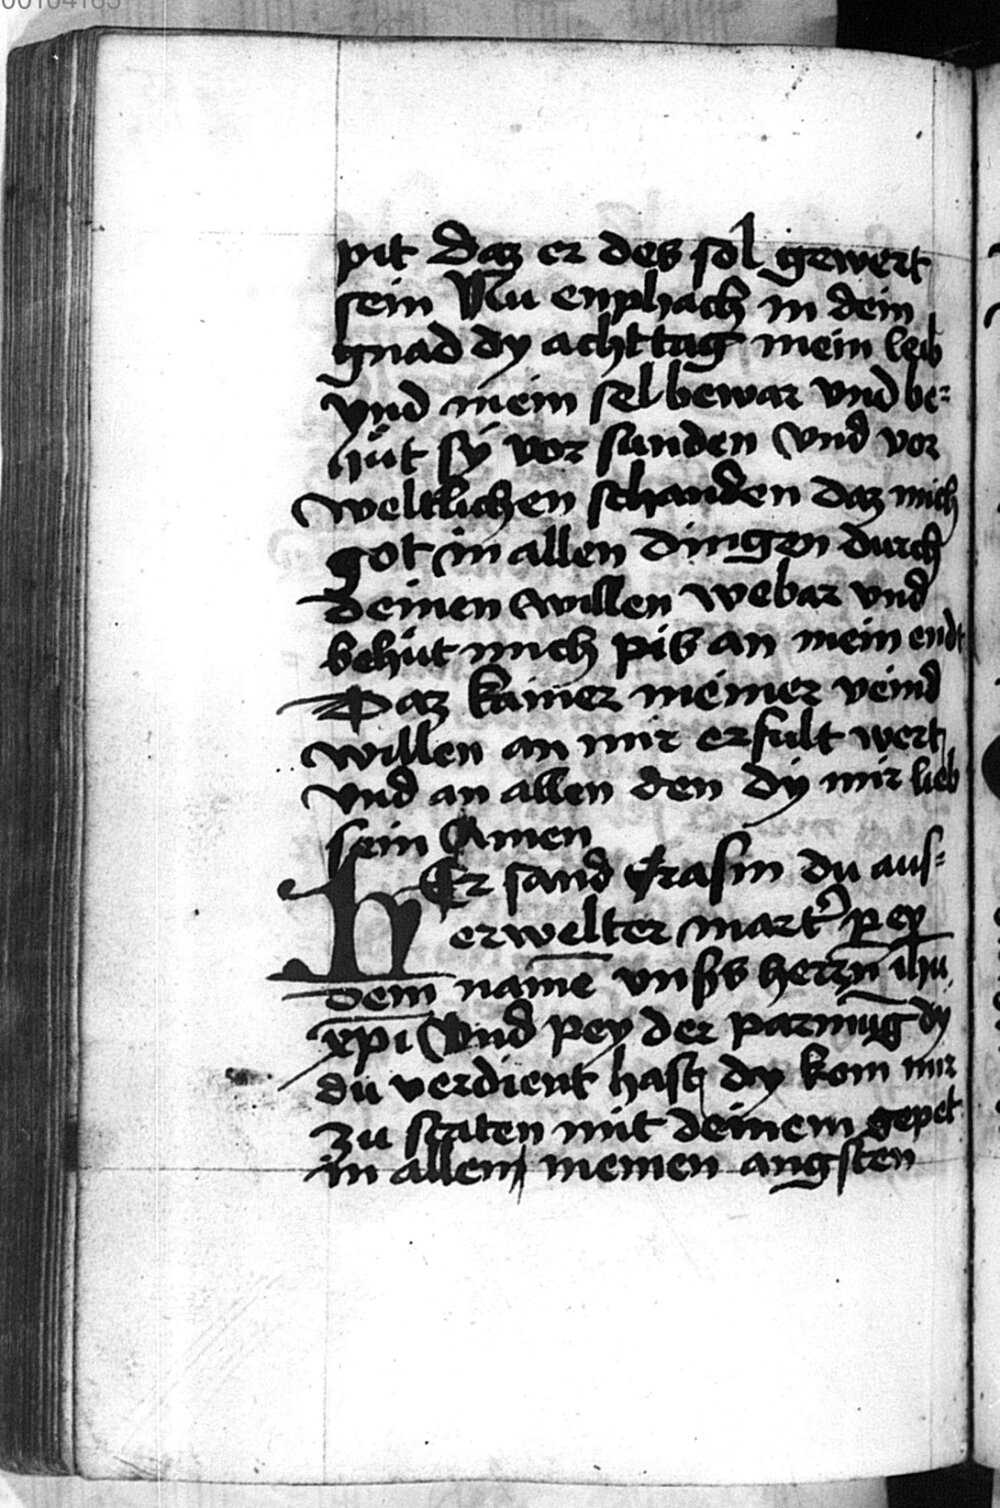 00104165
pit daz er des sol gewert
sein Nu enphach in dein
gnad dy achttag mein leib
vnd mein sel bewar vnd be-
hüt sy vor sunden vnd vor
weltlichen schanden daz mich
got in allen dingen durch
deinen willen webar vnd
behüt mich pis an mein endt
Daz kainer meiner veind
willen an mir erfult wert
vnd an allen den dy mir lieb
sein Amen
HEr sand Erasm du aus-
erwelter marter pey
dem name vnsers herrn ihu
xpi Vnd pey der parmug dy
du verdient hast dy kom mir
zu staten mit deinem gepet
in allen meinen angsten